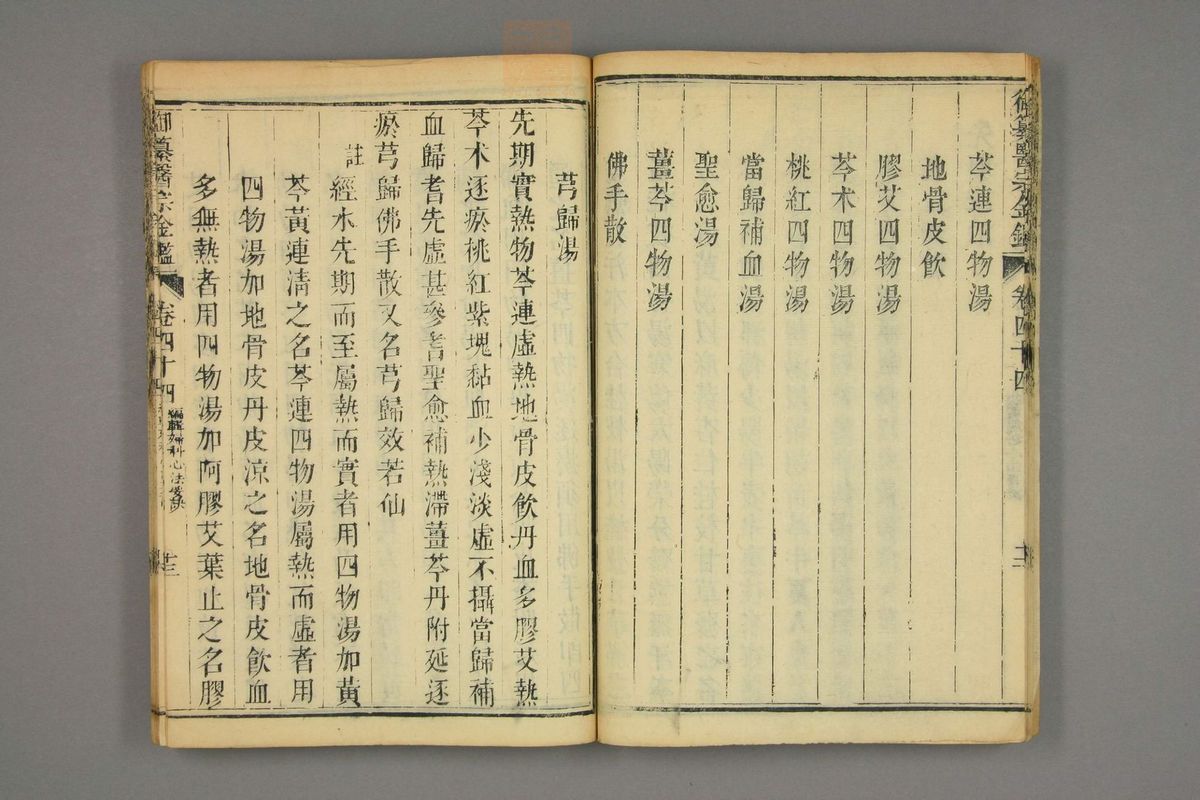 御纂醫宗金鑑 卷四十四
芩連四物湯
地骨皮飲
膠艾四物湯
芩朮四物湯
桃紅四物湯
當歸補血湯
聖愈湯
薑芩四物湯
佛手散
芎歸湯
先期實熱物芩連虛熱地骨皮飲丹血多膠艾熱
芩朮逐瘀桃紅紫塊黏血少淺淡虛不攝當歸補
血歸耆先虛甚參耆聖愈補熱滯薑芩丹附延逐
瘀芎歸佛手散又名芎歸效若仙
註
經水先期而至屬熱而實者用四物湯加黃
芩黃連清之名芩連四物湯屬熱而虛者用
四物湯加地骨皮丹皮涼之名地骨皮飲血
多無熱者用四物湯加阿膠艾葉止之名膠
御纂醫宗金鑑 卷四十四 編輯婦科心法要訣